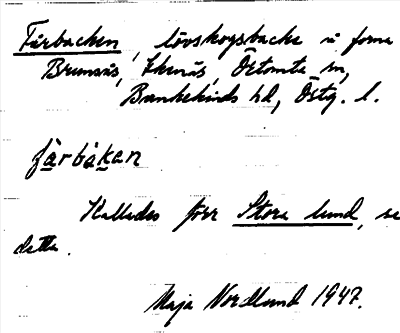 Fårbacken, lövskogsbacke i forna
Brunnäs, Ekenäs, Östomta sn,
Bankekinds hd, Östg. l.
fårbákan
Kallades förr Stora lund, se
detta.
Maja Nordlund 1947.